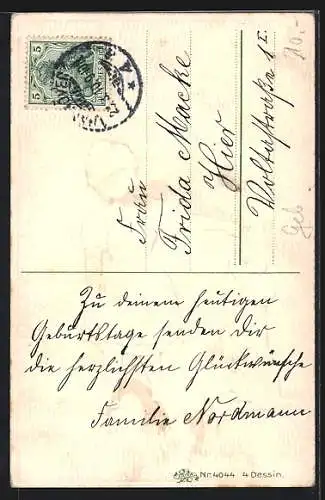 Frau
Frida Macke
Hier
Voltastraße 1
Zu deinem heutigen
Geburtstage senden dir
die herzlichsten Glückwünsche
Familie Nordmann
Nr. 4044 4 Dessin.
5 5
20.-
Geb